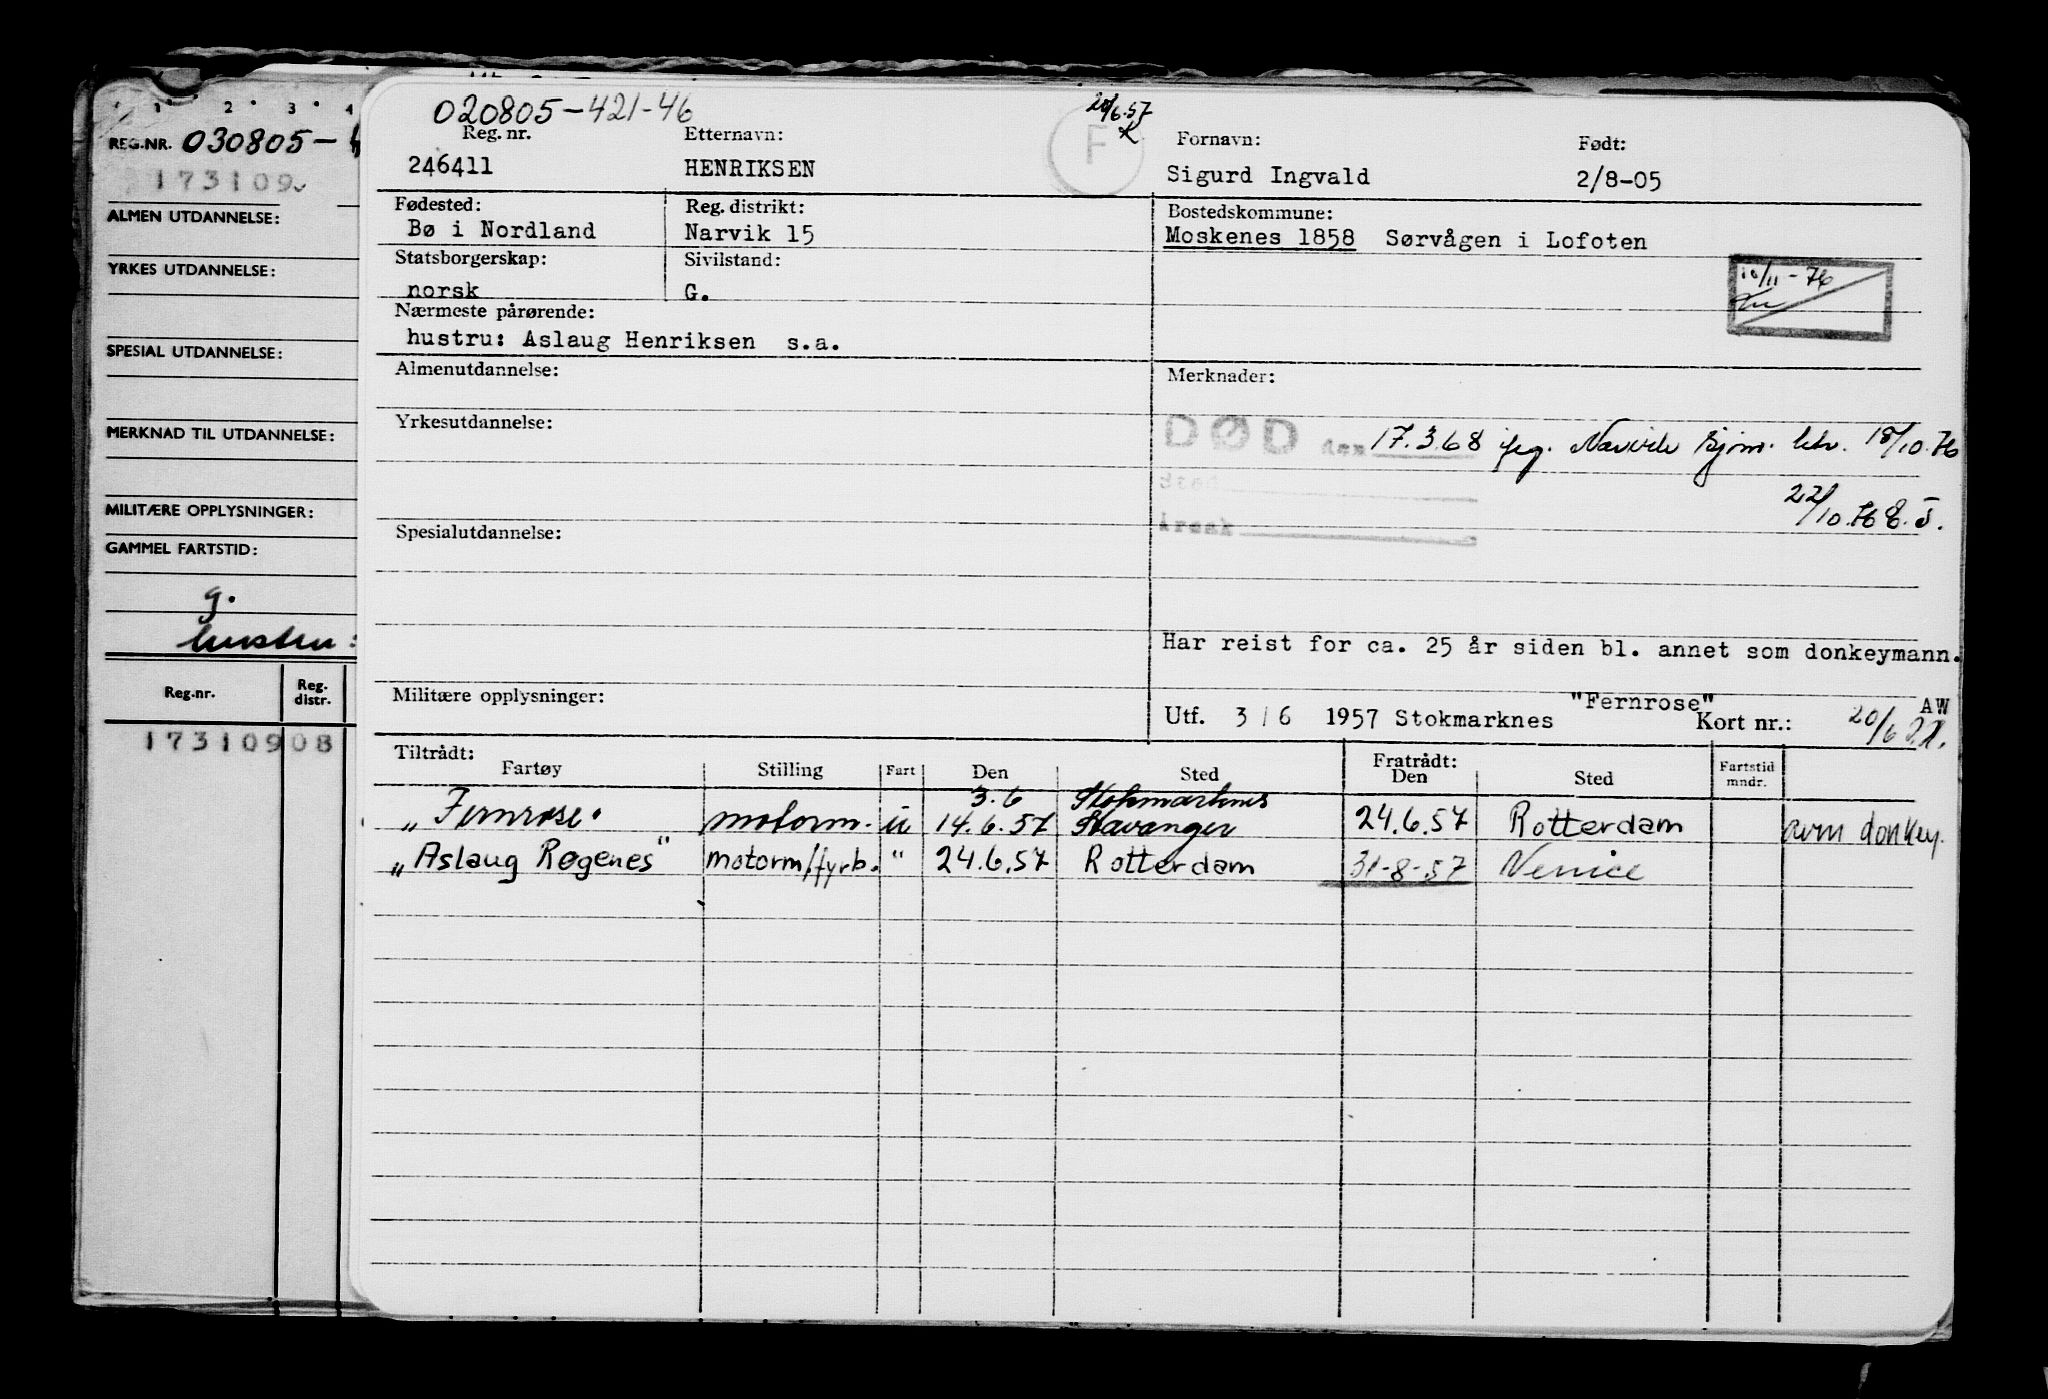 1 2 3 4
REG.NR. 030805-
173109
ALMEN UTDANNELSE:
YRKES UTDANNELSE:
SPESIAL UTDANNELSE:
MERKNAD TIL UTDANNELSE:
MILITÆRE OPPLYSNINGER:
GAMMEL FARTSTID:
g.
hustru:
Reg.nr. Reg. distr.
17310908
020805-421-46
20/6.57
F
Reg. nr. Etternavn: Fornavn: Født:
246411 HENRIKSEN Sigurd Ingvald 2/8-05
Fødested: Reg. distrikt: Bostedskommune:
Bø i Nordland Narvik 15 Moskenes 1858 Sørvågen i Lofoten
Statsborgerskap: Sivilstand:
norsk G.
10/11-76
Nærmeste pårørende:
hustru: Aslaug Henriksen s.a.
Almenutdannelse: Merknader:
Yrkesutdannelse:
DØD den 17.3.68 Narvik 18/10.76
Sted
22/10.76
Årsak
Spesialutdannelse:
Har reist for ca. 25 år siden bl. annet som donkeymann.
Militære opplysninger:
"Fernrose" AW
Utf. 3/6 1957 Stokmarknes Kort nr.: 20/6
Tiltrådt: Fratrådt:
Fartøy Stilling Fart Den Sted Den Sted Fartstid mndr.
3.6 Stokmarknes
"Fernrose" motorm. u 14.6.57 Stavanger 24.6.57 Rotterdam avm donkey.
"Aslaug Røgenes" motorm/fyrb. " 24.6.57 Rotterdam 31-8-57 Venice